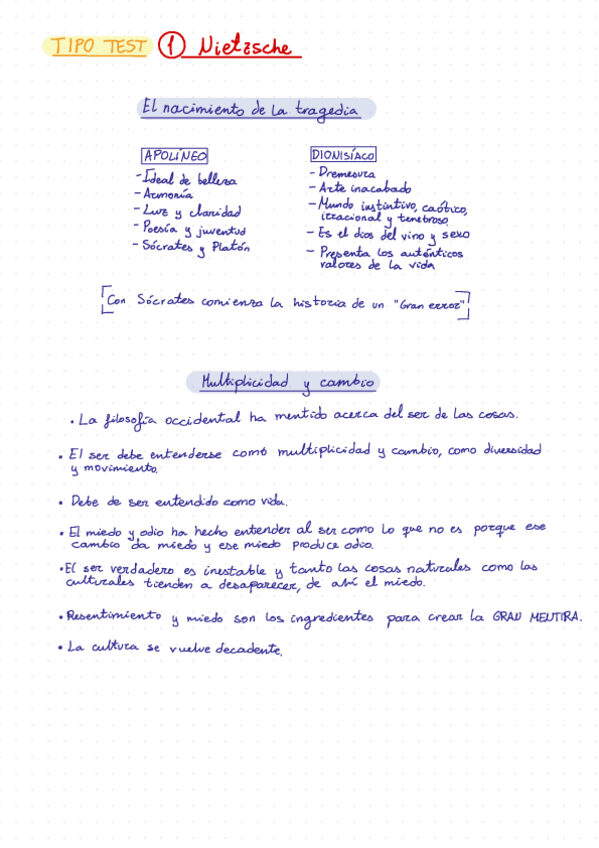 TIPO TEST ① Nietzsche
El nacimiento de la tragedia
APOLÍNEO
- Ideal de belleza
- Armonía
- Luz y claridad
- Poesía y juventud
- Sócrates y Platón
DIONISÍACO
- Dremesura
- Arte inacabado
- Mundo instintivo, caótico,
irracional y tenebroso
- Es el dios del vino y sexo
- Presenta los auténticos
valores de la vida
[Con Sócrates comienza la historia de un "Gran error"]
Multiplicidad y cambio
• La filosofía occidental ha mentido acerca del ser de las cosas.
• El ser debe entenderse como multiplicidad y cambio, como diversidad
y movimiento.
• Debe de ser entendido como vida.
• El miedo y odio ha hecho entender al ser como lo que no es porque ese
cambio da miedo y ese miedo produce odio.
• El ser verdadero es inestable y tanto las cosas naturales como las
culturales tienden a desaparecer, de ahí el miedo.
• Resentimiento y miedo son los ingredientes para crear la GRAN MENTIRA.
• La cultura se vuelve decadente.